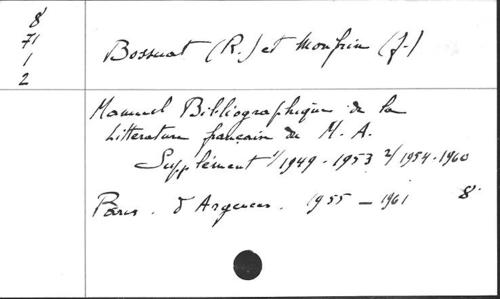 8°
71
1
2
Bossuat (R.) et Monfrin (J.)
Manuel Bibliographique de la
Littérature française du M. A.
Supplément 1/1949-1953 2/1954-1960
Paris. d'Argences. 1955-1961 8°